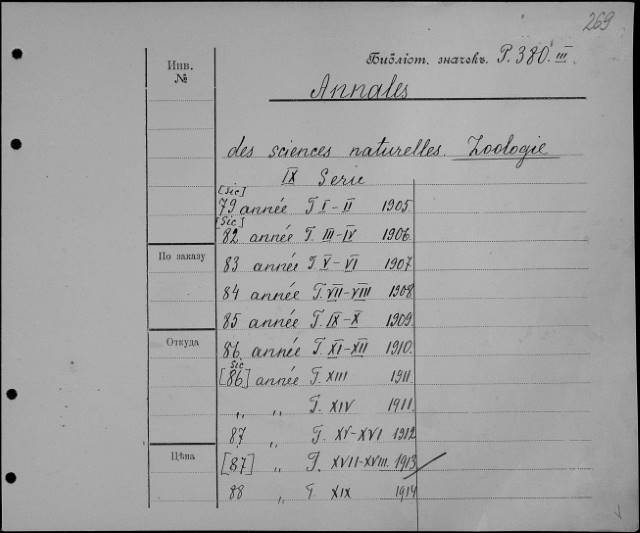 269
Библіот. значекъ. P. 380. III
Инв.
№
Annales
des sciences naturelles. Zoologie
IX Serie
[sic]
79 année T. I-II 1905.
[sic]
82 année T. III-IV 1906.
По заказу
83 année T. V-VI 1907.
84 année T. VII-VIII 1908.
85 année T. IX-X 1909.
Откуда
86 année T. XI-XII 1910.
sic
[86] année T. XIII 1911.
„ „ T. XIV 1911.
87 „ T. XV-XVI 1912
Цѣна
[87] „ T. XVII-XVIII. 1913
88 „ T. XIX 1914